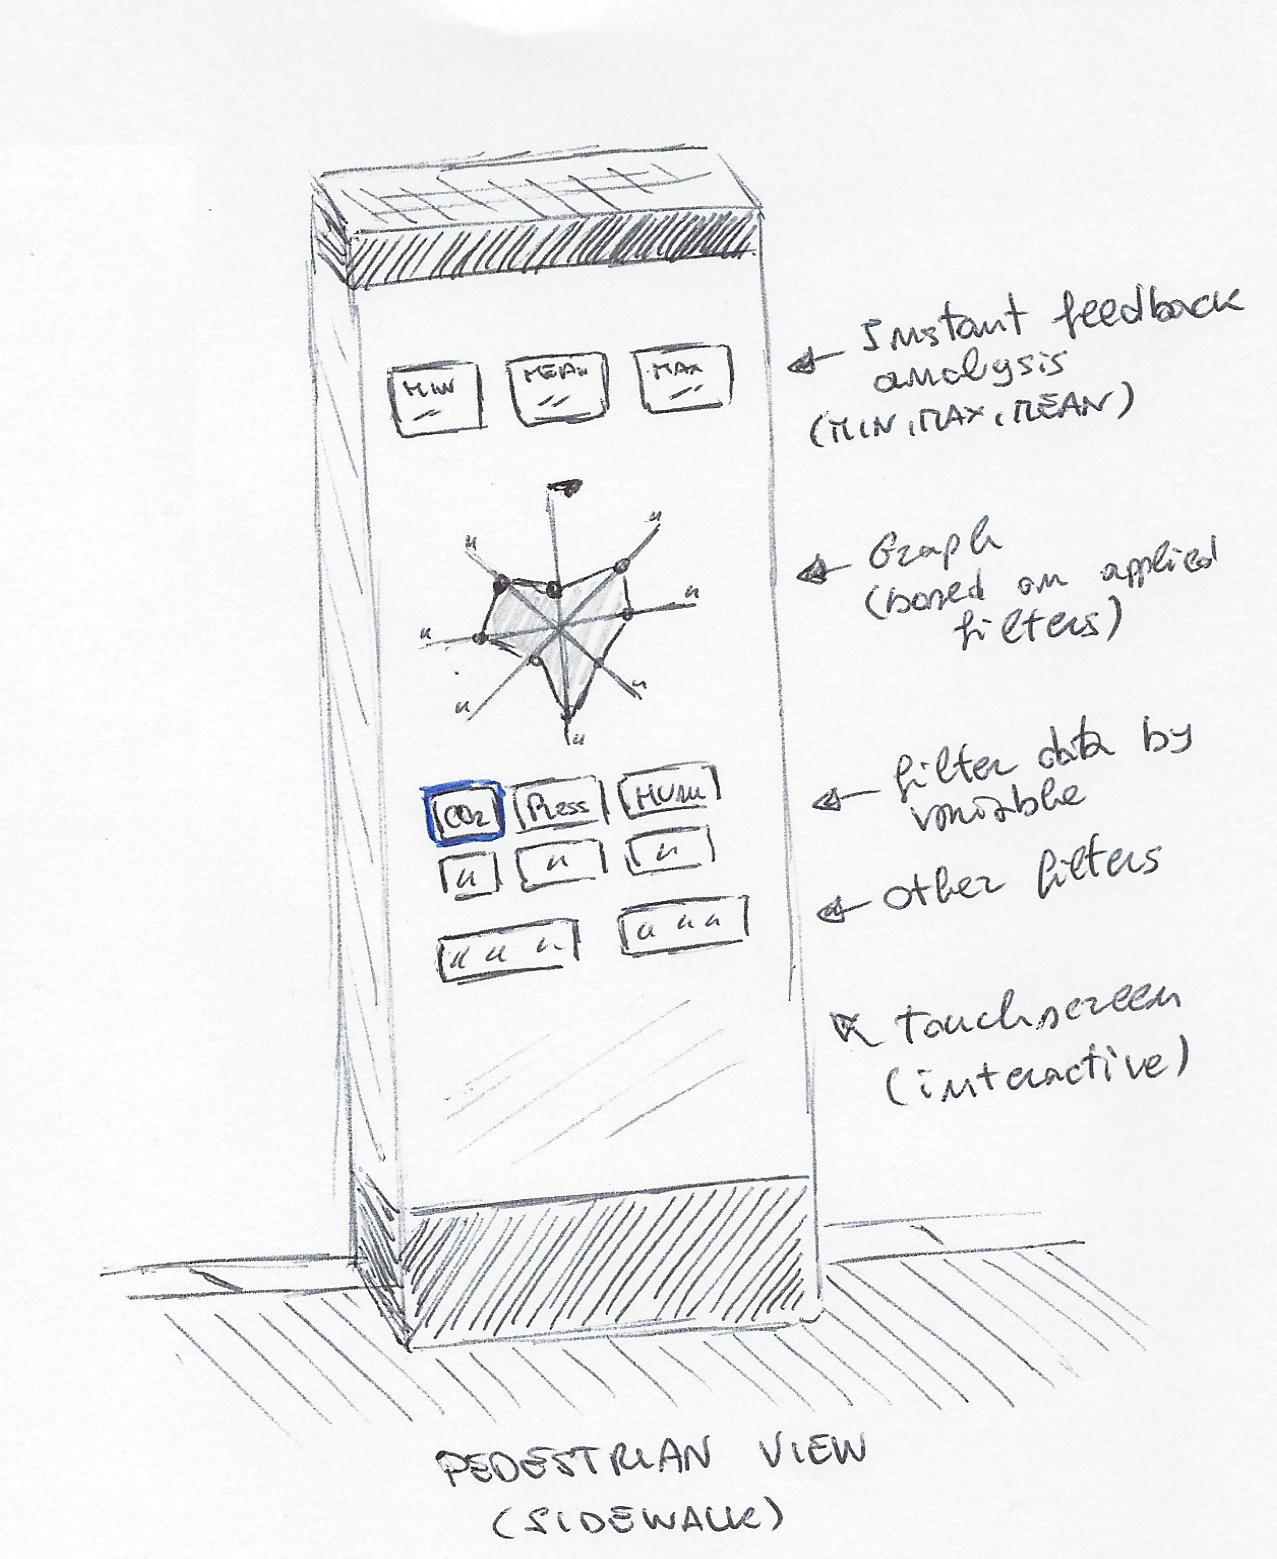 MIN MEAN MAX
Instant feedback
analysis
(MIN, MAX, MEAN)
Graph
(based on applied
filters)
CO2 Press HUM
filter data by
variable
other filters
touchscreen
(interactive)
PEDESTRIAN VIEW
(SIDEWALK)